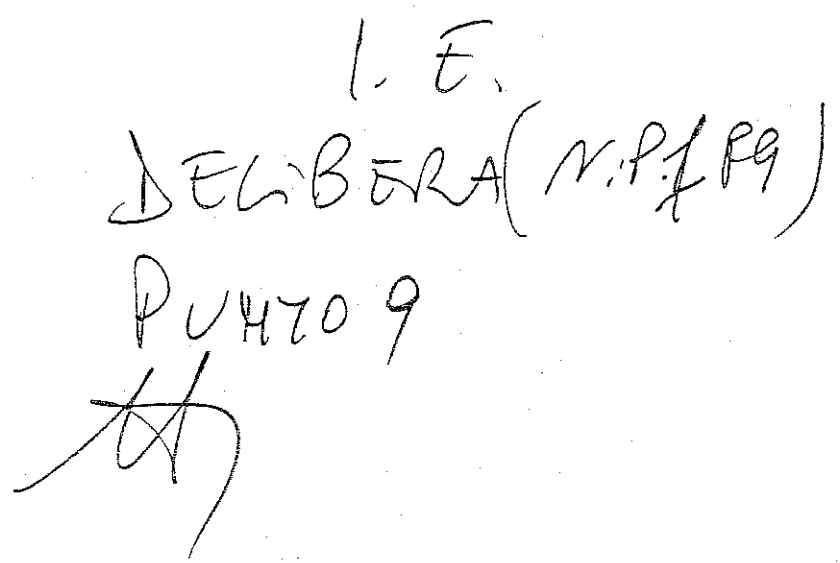 I. E.
DELIBERA (N.P.f P9)
PUNTO 9